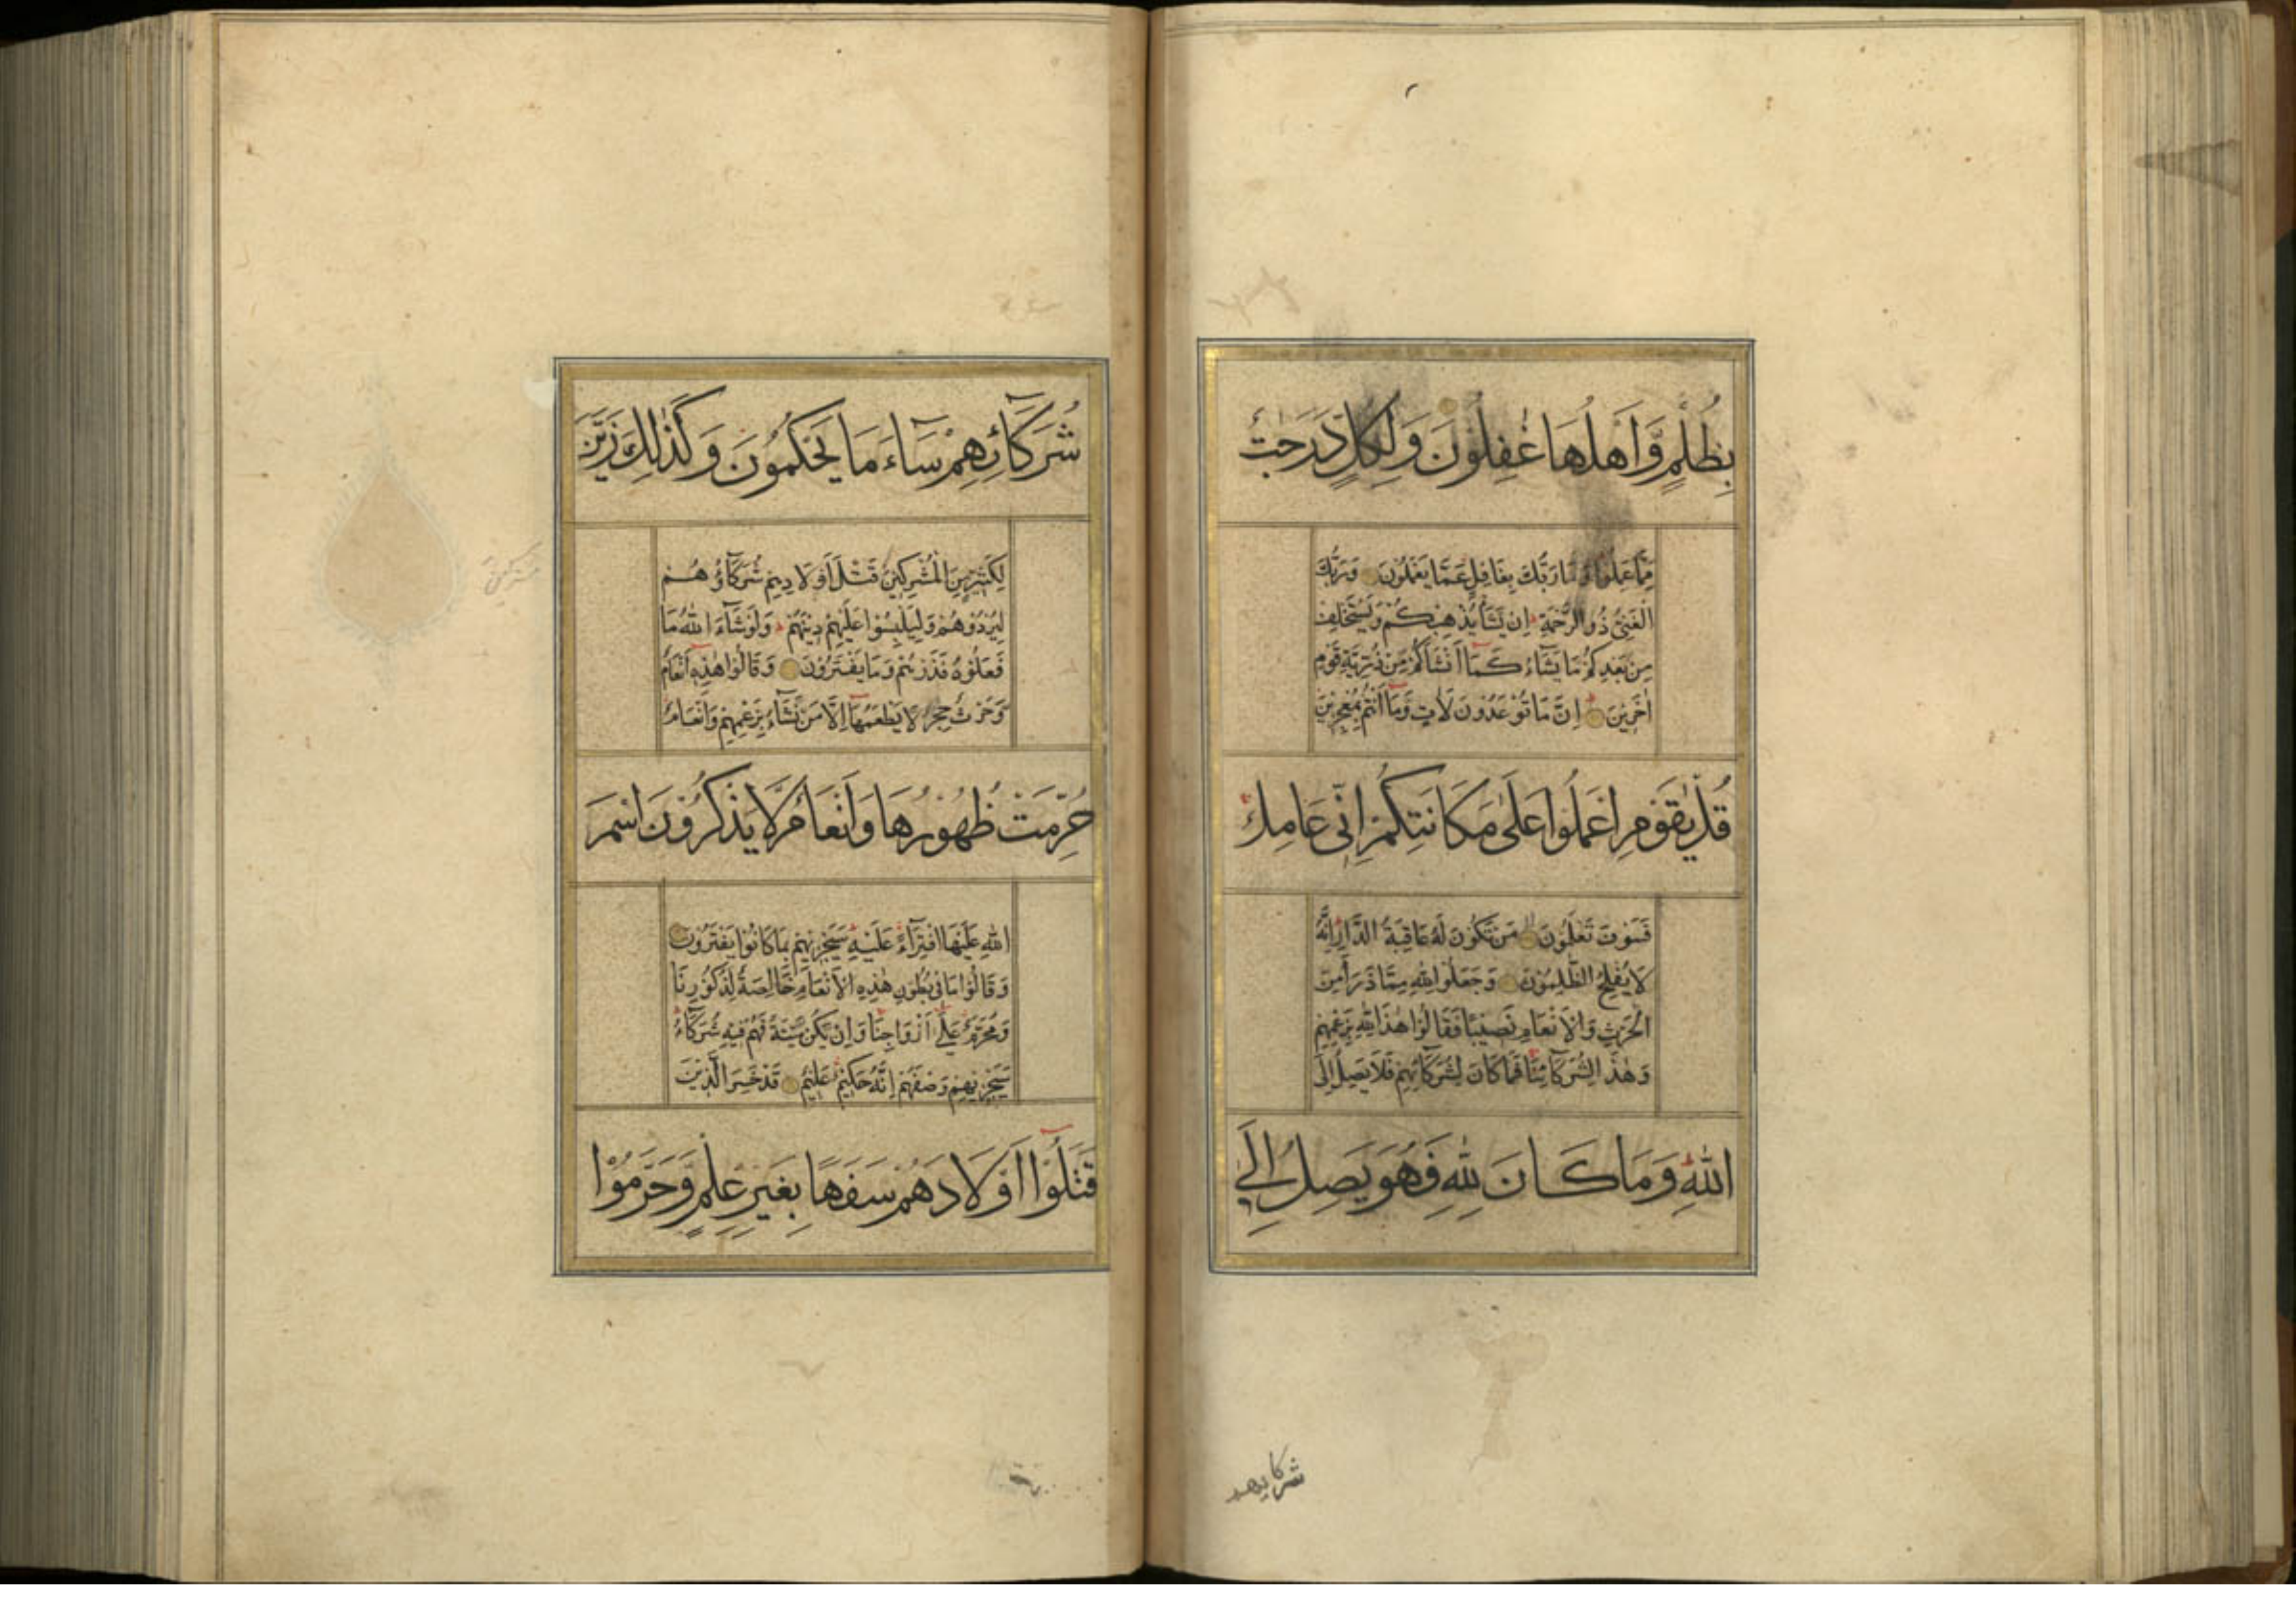 بِظُلْمٍ وَّاَهْلُهَا غٰفِلُوْنَ وَلِكُلٍّ دَرَجٰتٌ
مِّمَّا عَمِلُوْا وَمَا رَبُّكَ بِغَافِلٍ عَمَّا يَعْمَلُوْنَ وَرَبُّكَ
الْغَنِيُّ ذُو الرَّحْمَةِ اِنْ يَّشَأْ يُذْهِبْكُمْ وَيَسْتَخْلِفْ
مِنْ بَعْدِكُمْ مَا يَشَآءُ كَمَآ اَنْشَاَكُمْ مِنْ ذُرِّيَّةِ قَوْمٍ
اٰخَرِيْنَ اِنَّ مَا تُوْعَدُوْنَ لَاٰتٍ وَمَآ اَنْتُمْ بِمُعْجِزِيْنَ
قُلْ يٰقَوْمِ اعْمَلُوْا عَلٰى مَكَانَتِكُمْ اِنِّيْ عَامِلٌ
فَسَوْفَ تَعْلَمُوْنَ مَنْ تَكُوْنُ لَهٗ عَاقِبَةُ الدَّارِ اِنَّهٗ
لَا يُفْلِحُ الظّٰلِمُوْنَ وَجَعَلُوْا لِلّٰهِ مِمَّا ذَرَاَ مِنَ
الْحَرْثِ وَالْاَنْعَامِ نَصِيْبًا فَقَالُوْا هٰذَا لِلّٰهِ بِزَعْمِهِمْ
وَهٰذَا لِشُرَكَآئِنَا فَمَا كَانَ لِشُرَكَآئِهِمْ فَلَا يَصِلُ اِلَى
اللّٰهِ وَمَا كَانَ لِلّٰهِ فَهُوَ يَصِلُ اِلٰى
شركايهم
شُرَكَآئِهِمْ سَآءَ مَا يَحْكُمُوْنَ وَكَذٰلِكَ زَيَّنَ
لِكَثِيْرٍ مِّنَ الْمُشْرِكِيْنَ قَتْلَ اَوْلَادِهِمْ شُرَكَآؤُهُمْ
لِيُرْدُوْهُمْ وَلِيَلْبِسُوْا عَلَيْهِمْ دِيْنَهُمْ وَلَوْ شَآءَ اللّٰهُ مَا
فَعَلُوْهُ فَذَرْهُمْ وَمَا يَفْتَرُوْنَ وَقَالُوْا هٰذِهٖٓ اَنْعَامٌ
وَّحَرْثٌ حِجْرٌ لَا يَطْعَمُهَآ اِلَّا مَنْ نَّشَآءُ بِزَعْمِهِمْ وَاَنْعَامٌ
حُرِّمَتْ ظُهُوْرُهَا وَاَنْعَامٌ لَّا يَذْكُرُوْنَ اسْمَ
اللّٰهِ عَلَيْهَا افْتِرَآءً عَلَيْهِ سَيَجْزِيْهِمْ بِمَا كَانُوْا يَفْتَرُوْنَ
وَقَالُوْا مَا فِيْ بُطُوْنِ هٰذِهِ الْاَنْعَامِ خَالِصَةٌ لِذُكُوْرِنَا
وَمُحَرَّمٌ عَلٰٓى اَزْوَاجِنَا وَاِنْ يَكُنْ مَّيْتَةً فَهُمْ فِيْهِ شُرَكَآءُ
سَيَجْزِيْهِمْ وَصْفَهُمْ اِنَّهٗ حَكِيْمٌ عَلِيْمٌ قَدْ خَسِرَ الَّذِيْنَ
قَتَلُوْٓا اَوْلَادَهُمْ سَفَهًا بِغَيْرِ عِلْمٍ وَّحَرَّمُوْا